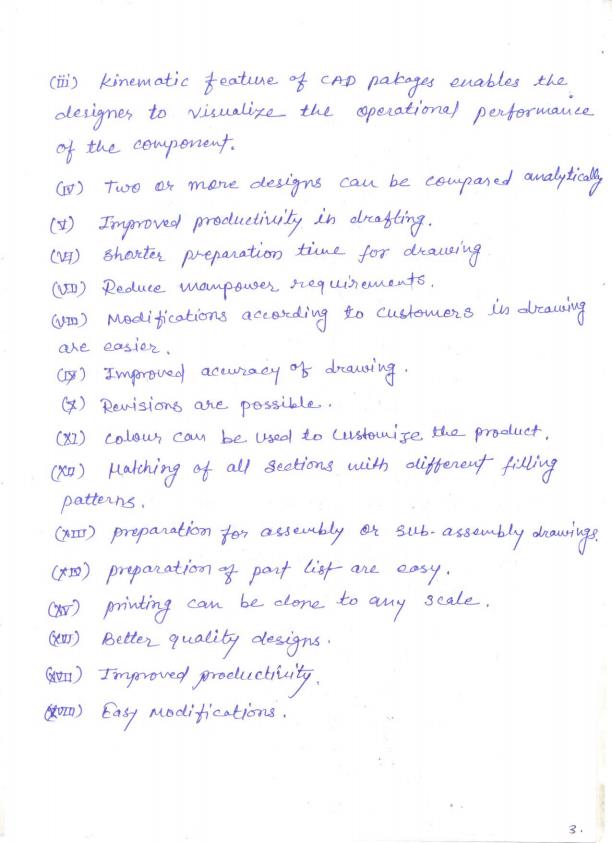 (iii) Kinematic feature of CAD pakages enables the
designer to visualize the operational performance
of the component.
(IV) Two or more designs can be compared analytically
(V) Improved productivity in drafting.
(VI) Shorter preparation time for drawing
(VII) Reduce manpower requirements.
(VIII) Modifications according to customers in drawing
are easier.
(IX) Improved accuracy of drawing.
(X) Revisions are possible.
(XI) colour can be used to customize the product.
(XII) Hatching of all sections with different filling
patterns.
(XIII) preparation for assembly or sub-assembly drawings.
(XIV) preparation of part list are easy.
(XV) printing can be done to any scale.
(XVI) Better quality designs.
(XVII) Improved productivity.
(XVIII) Easy Modifications.
3.